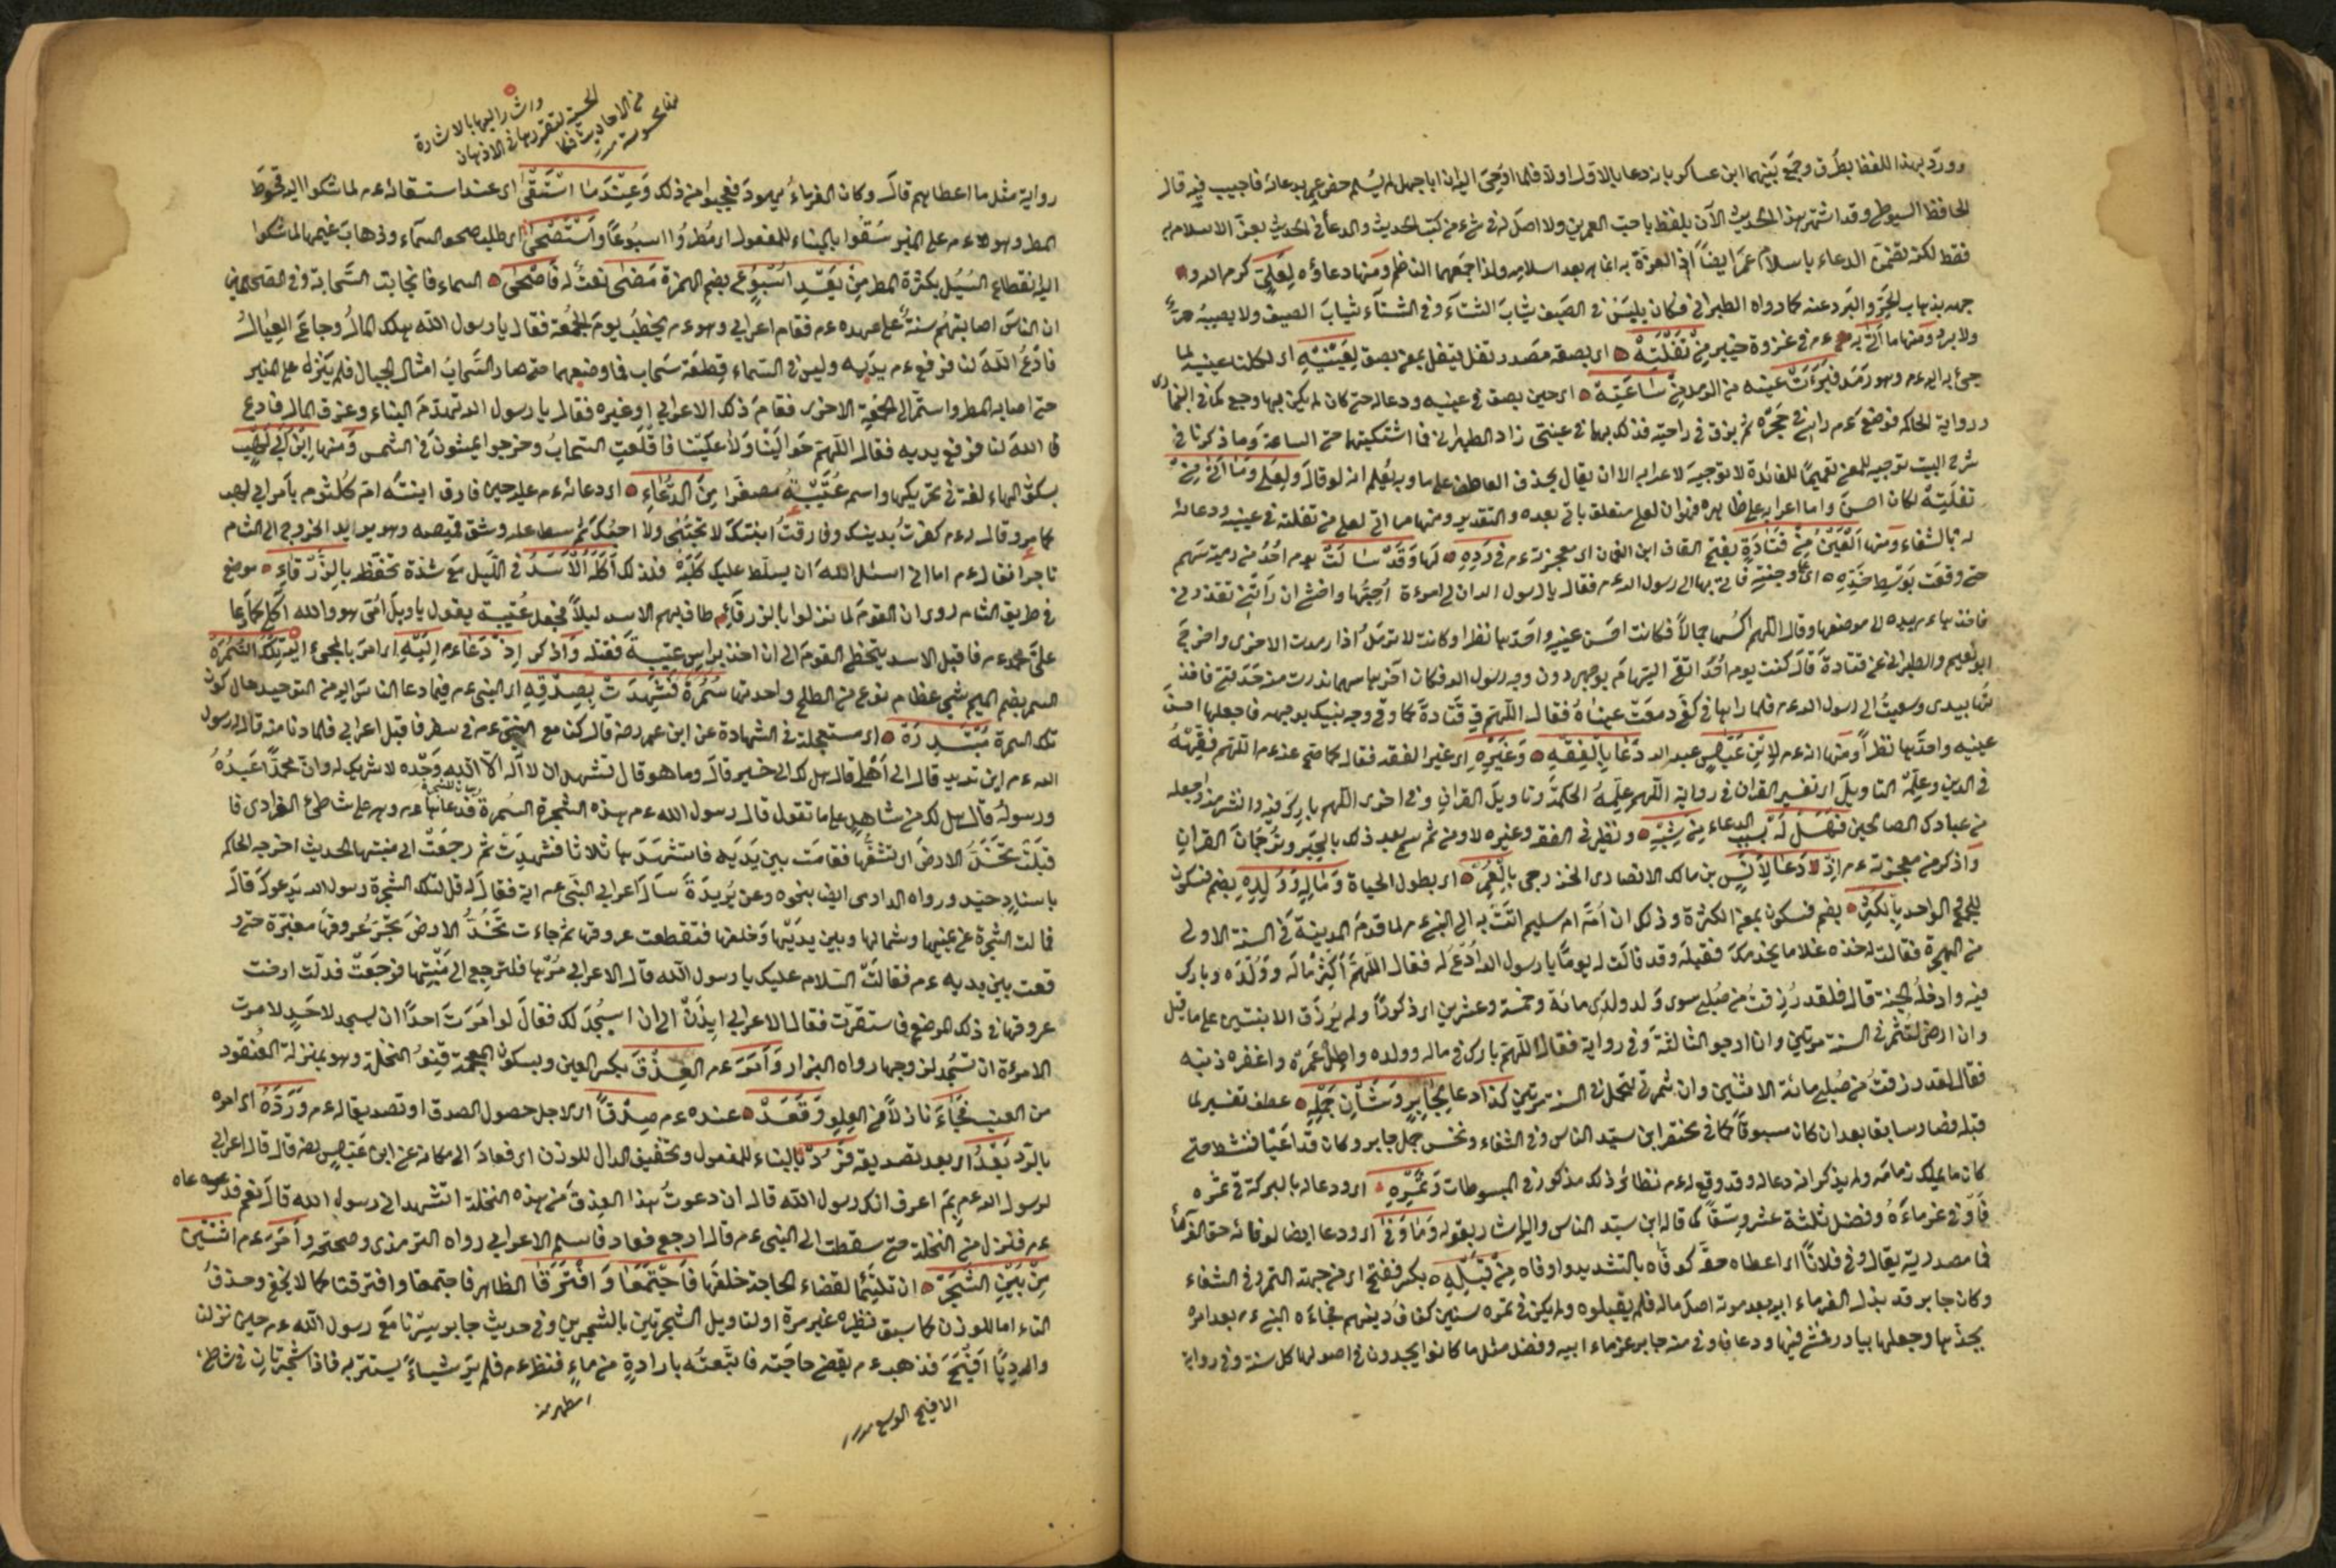 وورد بهذا اللفظ بطرق وجمع بينهما ابن عساكر بانه دعا بالاول اولا فلما اوحى اليه ان ابا جهل لم يسلم خص عمر بدعائه فاجيب فيه قال
الحافظ السيوطي وقد اشتهر بهذا الحديث الآن بلفظ باحب العمرين ولا اصل له في شيء من كتب الحديث والدعاء في الحديث بعز الاسلام به
فقط لكنه تضمن الدعاء باسلام عمر ايضا اذ العزة به انما بعد اسلامه ولذا جمعهما الناظم ومنها دعاؤه لعلي كرم الله و
جهه بذهاب الحر والبرد عنه كما رواه الطبراني فكان يلبس في الصيف ثياب الشتاء وفي الشتاء ثياب الصيف ولا يصيبه حر
ولا برد ومنها ما اتى به عم في غزوة خيبر من تفلته اي بصقه مصدر تفل يتفل بمعنى بصق لعينيه اي لكلتا عينيه لما
جيء به اليه عم وهو رمد فبرءت عينه من الرمد من ساعته اي حين بصق في عينيه ودعا له حتى كان لم يكن بها وجع كما في البخاري
ورواية الحاكم فوضع عم راسي في حجره ثم بزق في راحته فدلك بها في عينتي زاد الطبراني فما اشتكيتهما حتى الساعة وما ذكرنا في
شرح البيت توجيه للمعنى تعميما للفائدة لا توجيه لاعرابه الا ان يقال بحذف العاطف على ما وبه يعلم انه لو قال ولعلي وما اتى من
تفلته لكان احسن واما اعرابه على ظاهره فهو ان لعلي متعلق باتى بعده والتقدير ومنها ما اتى لعلي من تفلته في عينيه ودعائه
له بالشفاء ومنها العين من قتادة بفتح القاف ابن النعمان اي معجزته عم في رده لها وقد سالت يوم احد من رمية سهم
حتى وقعت بوسط خده اي وجنته فاتى بها الى رسول الله عم فقال يا رسول الله ان لي امرءة احبها واخشى ان راتني تقذرني
فاخذها عم بيده الى موضعها وقال اللهم اكسها جمالا فكانت احسن عينيه واحدهما نظرا وكانت لا ترمد اذا رمدت الاخرى واخرج
ابو نعيم والطبراني عن قتادة قال كنت يوم احد اتقي السهام بوجهي دون وجه رسول الله فكان اخرها سهما ندرت منه حدقتي فاخذ
تها بيدي وسعيت الى رسول الله عم فلما راها في كفي دمعت عيناه فقال اللهم ق قتادة كما وقى وجه نبيك بوجهه فاجعلها احسن
عينيه واحدهما نظرا ومنها انه عم لابن عباس عبد الله دعا بالفقه وغيره اي غير الفقه فقال كما صح عنه عم اللهم فقهه
في الدين وعلمه التاويل اي تفسير القران في رواية اللهم علمه الحكمة وتاويل القران وفي اخرى اللهم بارك فيه وانشر منه واجعله
من عبادك الصالحين فهل له بسبب الدعاء من شبه ونظير في الفقه وغيره لا ومن ثم سمي بعد ذلك بالحبر وترجمان القران
واذكر من معجزته عم اذ دعا لانس بن مالك الانصاري الخزرجي بالعمر اي بطول الحياة وماله وولده بضم فسكون
للجمع الواحد بالكثر بضم فسكون بمعنى الكثرة وذلك ان امه ام سليم اتت به الى النبي عم لما قدم المدينة في السنة الاولى
من الهجرة فقالت له خذه غلاما يخدمك فقبله وقد قالت له يوما يا رسول الله ادع له فقال اللهم اكثر ماله وولده وبارك
فيه وادخله الجنة قال فلقد رزقت من صلبي سوى ولد ولدي مائة وخمسة وعشرين اي ذكورا ولم يرزق الا بنتين على ما قيل
وان ارضي لتثمر في السنة مرتين وانا ارجو الثالثة وفي رواية فقال اللهم بارك في ماله وولده واطل عمره واغفر ذنبه
فقال لقد رزقت من صلبي مائة الا اثنين وان ثمرتي لتحمل في السنة مرتين كذا دعا لجابر وشان جمله عطف تفسير لما
قبله فصار سابقا بعد ان كان مسبوقا كما في مختصر ابن سيد الناس وفي الشفاء ونخس جمل جابر وكان قد اعيا فنشط حتى
كان ما يملك زمامه ولم يذكر انه دعا له وقد وقع له عم نظائر ذلك مذكور في المبسوطات وتمره اي ودعا له بالبركة في تمره
فاوفى غرماءه وفضل ثلثة عشر وسقا كما قاله ابن سيد الناس واليه اشار بقوله وما وفى اي ودعا ايضا لوفائه حق الغرماء
فما مصدرية يقال وفى فلانا اي اعطاه حقه كوفاه بالتشديد واوفاه من قبله بكسر ففتح اي من جهته التمر وفي الشفاء
وكان جابر قد بذل لغرماء ابيه بعد موته اصل ماله فلم يقبلوه ولم يكن في تمره سنتين كفاف دينهم فجاءه النبي عم بعد امره
بجذها وجعلها بيادر فمشى فيها ودعا فاوفى منه جابر غرماء ابيه وفضل مثل ما كانوا يجدون في اصولها كل سنة وفي رواية
واشار اليها بالاشارة
الحسية لتقررها في الاذهان
رواية مثل ما اعطاهم قال وكان الغرماء يهود فعجبوا من ذلك وعندما استسقى اي عند استسقائه عم لما شكوا اليه قحوط
المطر وهو عم على المنبر سقوا بالبناء للمفعول اي مطروا اسبوعا واستصحى اي طلب صحو السماء وذهاب غيمها لما شكوا
اليه انقطاع السبل بكثرة المطر من بعد اسبوع بضم الهمزة مضى نعت له فاصحى السماء فانجابت السحابة وفي الصحيحين
ان الناس اصابتهم سنة على عهده عم فقام اعرابي وهو عم يخطب يوم الجمعة فقال يا رسول الله هلك المال وجاع العيال
فادع الله لنا فرفع عم يديه وليس في السماء قطعة سحاب فما وضعهما حتى صار السحاب امثال الجبال فلم ينزل على المنبر
حتى اصابه المطر واستمر الى الجمعة الاخرى فقام ذلك الاعرابي او غيره فقال يا رسول الله تهدم البناء وغرق المال فادع
الله لنا فرفع يديه فقال اللهم حوالينا ولا علينا فاقلعت السحاب وخرجوا يمشون في الشمس ومنها ابن ابي لهب
بسكون الهاء لغة في تحريكها واسمه عتيبة مصغرا من الدعاء اي دعائه عم عليه حين فارق ابنته ام كلثوم بامر ابي لهب
كما مر وقال له عم كفرت بدينك وفارقت ابنتك لا تحبني ولا احبك ثم سطا عليه وشق قميصه وهو يريد الخروج الى الشام
تاجرا فقال عم اما اني اسئل الله ان يسلط عليك كلبه فلذلك اكله الاسد في الليل مع شدة تحفظ بالزرقاء موضع
في طريق الشام روي ان القوم لما نزلوا بالزرقاء طاف بهم الاسد ليلا فجعل عتيبة يقول يا ويل امي هو والله اكلي كما دعا
علي محمد عم فاقبل الاسد يتخطى القوم الى ان اخذ براس عتيبة فقتله واذكر اذ دعاء عم اليه اي امر بالمجيء اليه تلك السمرة
السمر بضم الميم شجر عظام نوع من الطلح واحدتها سمرة فشهدت بصدقه اي النبي عم فيما دعا الناس اليه من التوحيد حال كون
تلك السمرة مبتدرة اي مستعجلة في الشهادة عن ابن عمر رضه قال كنا مع النبي عم في سفر فاقبل اعرابي فلما دنا منه قال له رسول
الله عم اين تريد قال الى اهلي قال هل لك الى خير قال وما هو قال تشهد ان لا اله الا الله وحده لا شريك له وان محمدا عبده
ورسوله قال هل لك من شاهد على ما تقول قال رسول الله عم هذه الشجرة السمرة فدعاها عم وهي على شاطئ الوادي فا
قبلت تخد الارض اي تشقها فقامت بين يديه فاستشهدها ثلاثا فشهدت ثم رجعت الى منبتها الحديث اخرجه الحاكم
باسناد جيد ورواه الدارمي ايضا بنحوه وعن بريدة سال اعرابي النبي عم اية فقال له قل لتلك الشجرة رسول الله يدعوك قال
فمالت الشجرة عن يمينها وشمالها وبين يديها وخلفها فتقطعت عروقها ثم جاءت تخد الارض تجر عروقها مغبرة حتى و
قعت بين يديه عم فقالت السلام عليك يا رسول الله قال الاعرابي مرها فلترجع الى منبتها فرجعت فدلت ارخت
عروقها في ذلك الموضع فاستقرت فقال الاعرابي ايذن لي ان اسجد لك فقال لو امرت احدا ان يسجد لاحد لامرت
الامرءة ان تسجد لزوجها رواه البزار وامر عم العذق بكسر العين وبسكون المعجمة قنو النخلة وهو بمنزلة العنقود
من العنب فجاء نازلا من العلو وقعد عنده عم صدقا اي لاجل حصول الصدق او تصديقا له عم ورده اي امره
بالرد بعد اي بعد تصديقه فرد بالبناء للمفعول وتخفيف الدال للوزن اي فعاد الى مكانه عن ابن عباس رضه قال قال اعرابي
لرسول الله عم بم اعرف انك رسول الله قال ان دعوت هذا العذق من هذه النخلة اتشهد اني رسول الله قال نعم فدعاه
عم فنزل من النخلة حتى سقطت الى النبي عم قال ارجع فعاد فاسلم الاعرابي رواه الترمذي وصححه وامر عم اثنتين
من بين الشجر ان تلتئما لقضاء الحاجة خلفها فاجتمعا وافترقا الظاهر فاجتمعتا وافترقتا كما لا يخفى وحذف
التاء اما للوزن كما سبق نظيره غير مرة او لتاويل الشجرتين بالشجرين وفي حديث جابر سرنا مع رسول الله عم حين نزلنا
واديا افيح فذهب عم يقضي حاجته فاتبعته باداوة من ماء فنظر عم فلم ير شيئا يستتر به فاذا شجرتان في شاطئ
الافيح الوسع